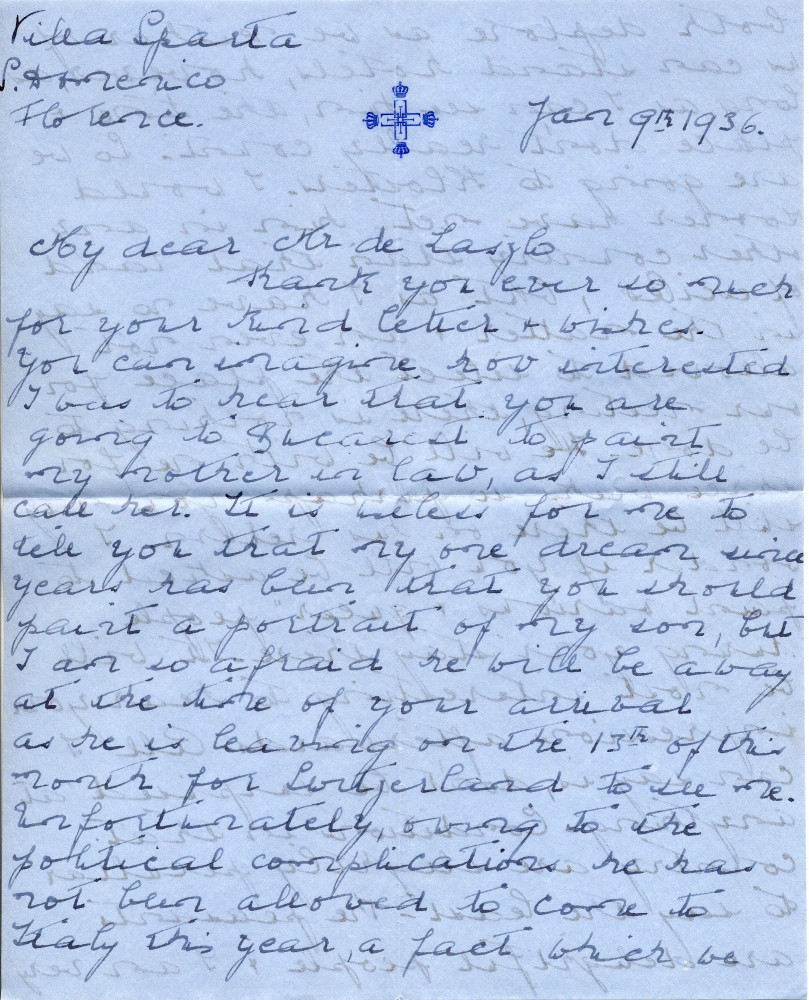 Villa Sparta
S. Domenico
Florence.
Jan 9TH 1936.
My dear Mr de Laszlo
Thank you ever so much
for your kind letter + wishes.
You can imagine how interested
I was to hear that you are
going to Bucarest to paint
my mother in law, as I still
call her. It is useless for me to
tell you that my one dream since
years has been that you should
paint a portrait of my son, but
I am so afraid he will be away
at the time of your arrival
as he is leaving on the 13TH of this
month for Switzerland to see me.
Unfortunately, owing to the
political complications he has
not been allowed to come to
Italy this year, a fact which we